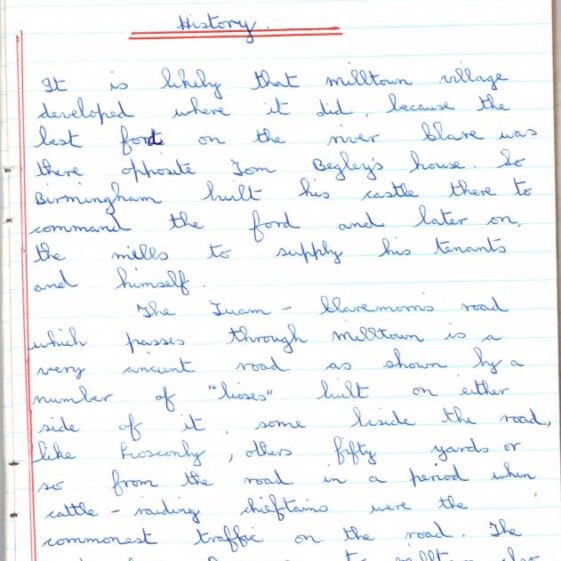 History.
It is likely that milltown village
developed where it did, because the
best ford on the river Clare was
there opposite Tom Begley's house. So
Birmingham built his castle there to
command the ford and later on,
the mills to supply his tenants
and himself.
The Tuam - Claremorris road
which passes through milltown is a
very ancient road as shown by a
number of "lioses" built on either
side of it, some beside the road,
like Lisconly, others fifty yards or
so from the road in a period when
cattle - raiding chieftains were the
commonest traffic on the road. The
to milltown also